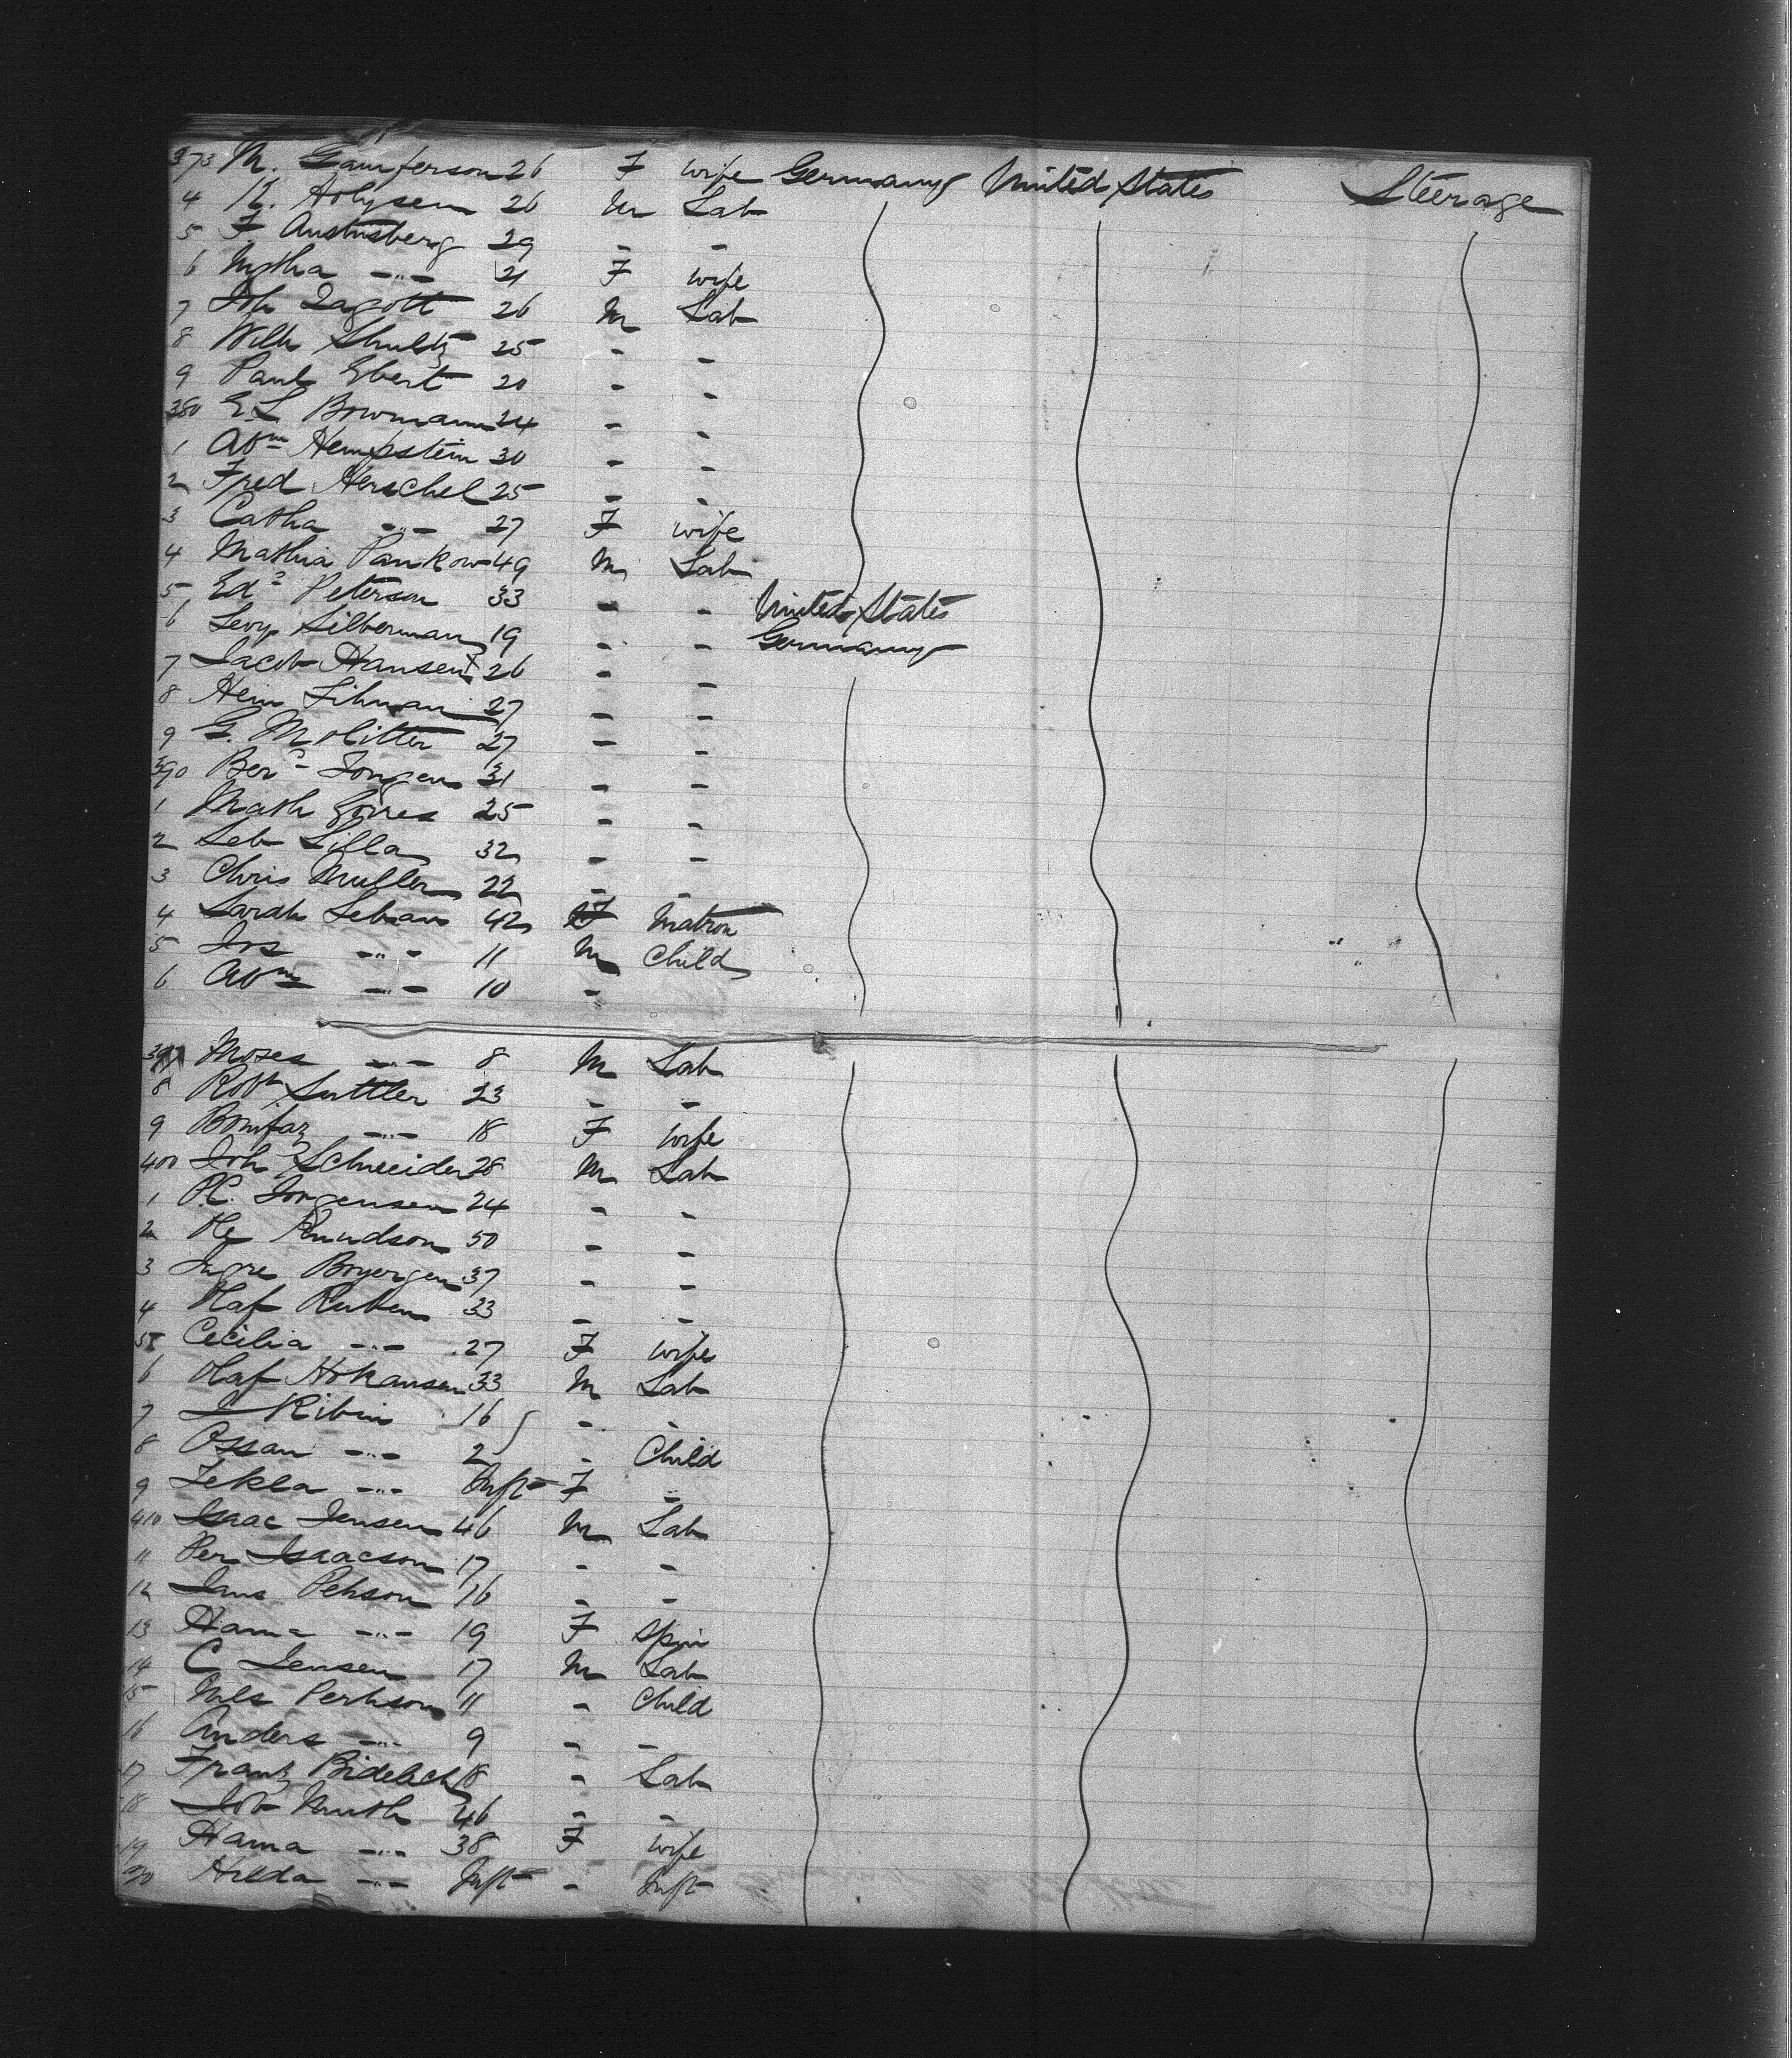 373 M. Gamferson 26 F wife Germany United States Steerage
4 K. Holysen 26 M Lab
5 F Austusberg 29 - -
6 Mytha -"- 21 F wife
7 Joh Zagott 26 M Lab
8 Wilh Shultz 25 - -
9 Paul Ebert 20 - -
380 E L Bowmann 24 - -
1 Abm Hempstein 30 - -
2 Fred Herschel 25 - -
3 Catha -"- 27 F wife
4 Mathia Pankow 49 M Lab
5 Edd Peterson 33 - - United States
6 Levy Silberman 19 - - Germany
7 Jacob Hansen 26 - -
8 Hein Lihman 27 - -
9 G. Molitter 27 - -
390 Ber Jongen 31 - -
1 Math Goires 25 - -
2 Seb Lilla 32 - -
3 Chris Muller 22 - -
4 Sarah Leban 42 F Matron
5 Jos -"- 11 M Child
6 Abm -"- 10 -
397 Moses -"- 8 M Lab
8 Robt Suttler 23 - -
9 Bonifaz -"- 18 F wife
400 Joh Schneider 28 M Lab
1 P.C. Jorgensen 24 - -
2 Knudson 50 - -
3 Boyergen 37 - -
4 Olaf Ruben 33 - -
5 Cecilia -"- 27 F wife
6 Olaf Hokansen 33 M Lab
7 J Ribin 16 - -
8 Ossan -"- 2 - Child
9 Tekla -"- Inft F -
410 Isaac Jensen 46 M Lab
11 Per Isaacson 17 - -
12 Jans Pehson 16 - -
13 Hanna -"- 19 F Spin
14 C Jensen 17 M Lab
15 Nils Perhson 11 - Child
16 Anders -"- 9 - -
17 Franz Bidelach 18 - Lab
18 Job Muth 46 - -
19 Hanna -"- 38 F wife
20 Hilda -"- Inft - Inft